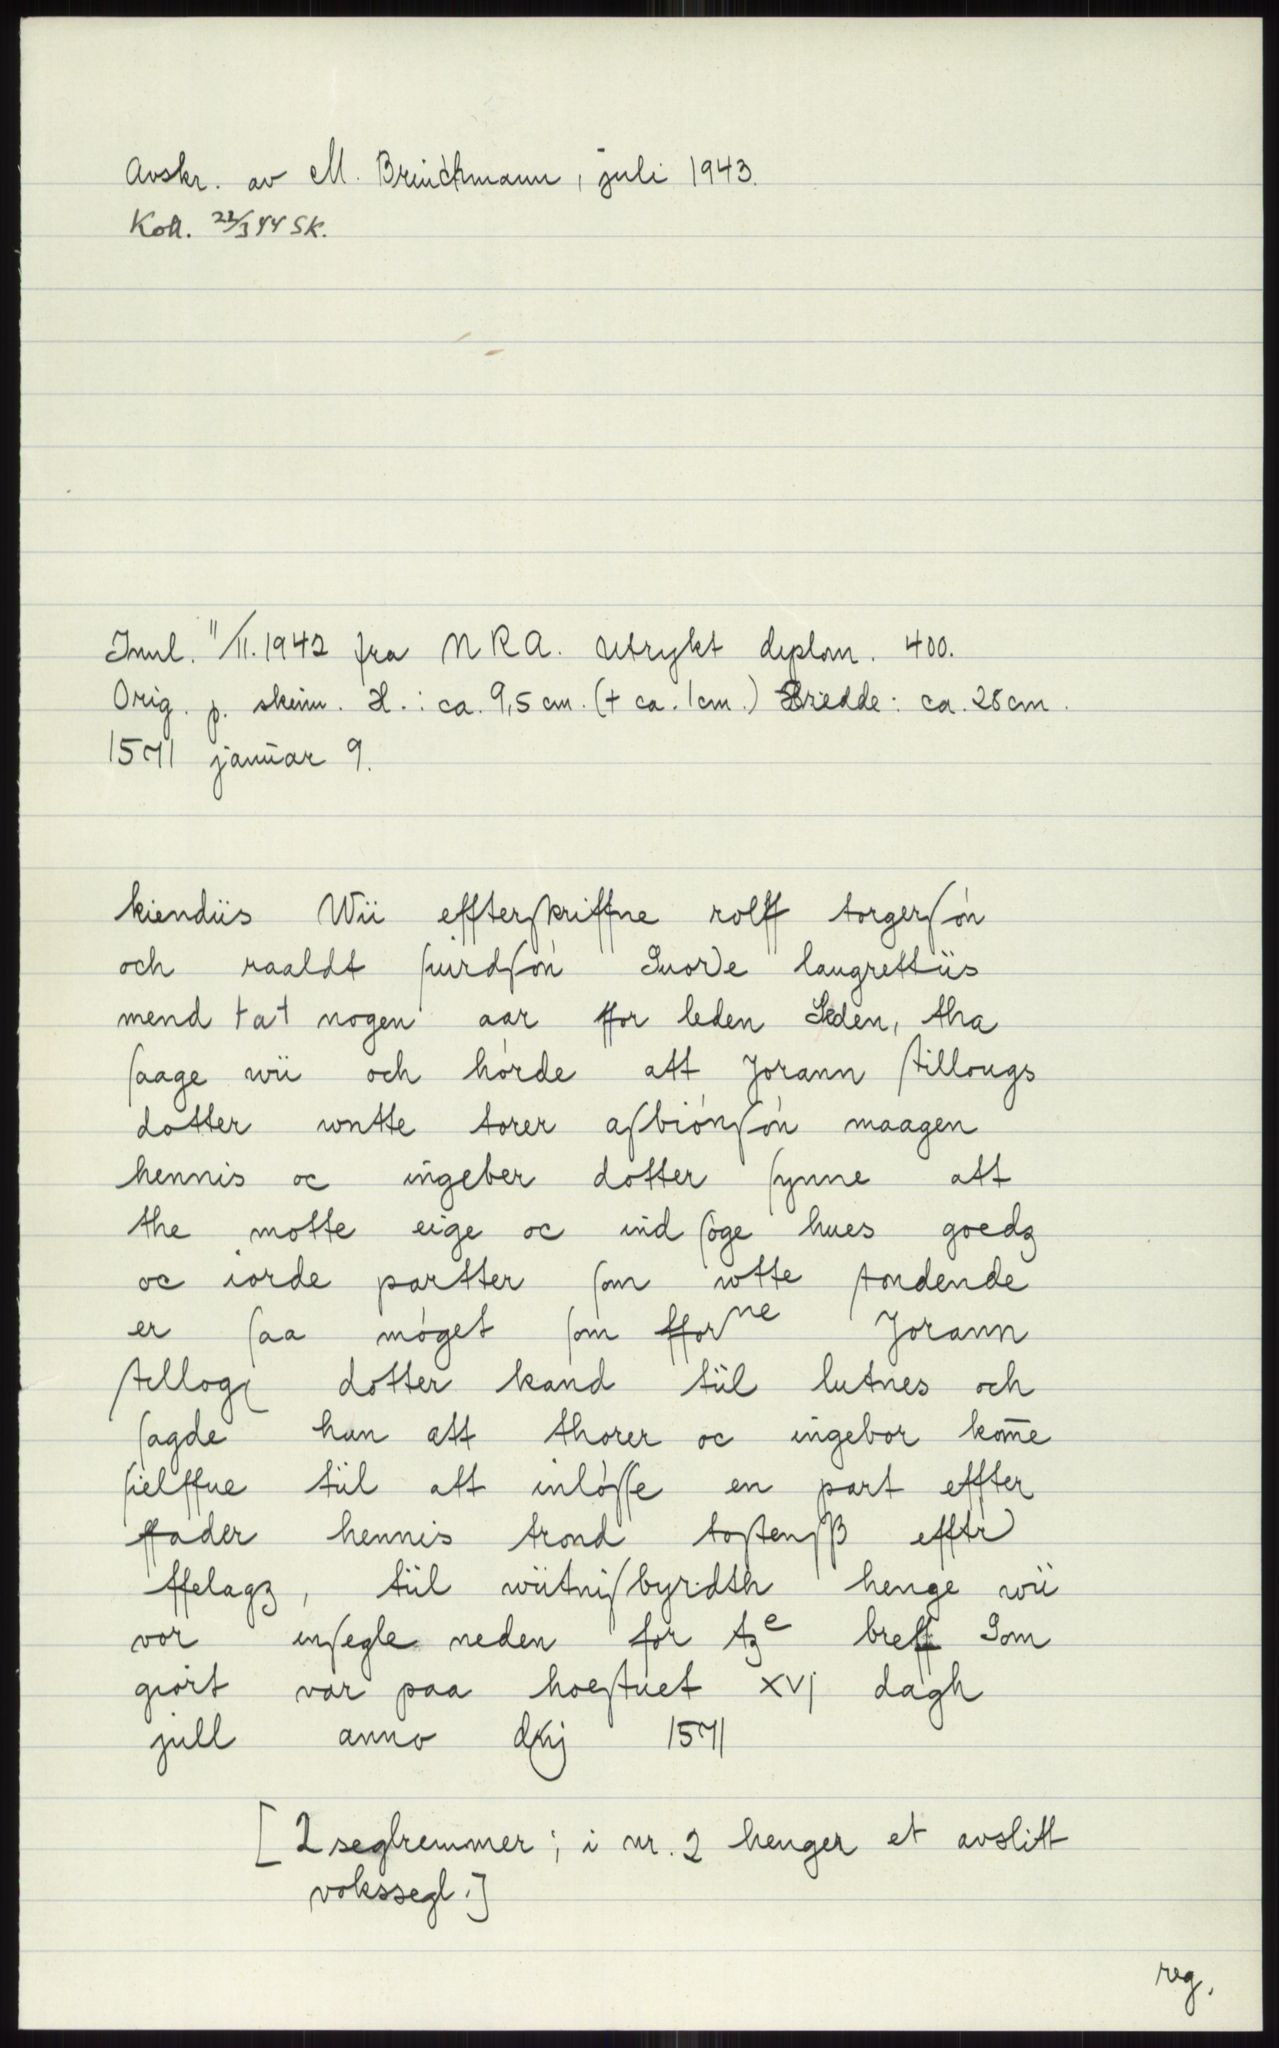 Avskr. av M. Brinchmann, juli 1943.
Koll. 22/3 44 SK.
Innl. 11/11.1942 fra NRA. Utrykt diplom. 400.
Orig. p. skinn. H.: ca. 9,5 cm. (+ ca. 1cm.) Bredde: ca. 28 cm.
1571 januar 9.
kiendiis Wii effterſkriffne rolff torgerſón
och raaldt ſiurdſón Suorde laugrettiis
mend tat nogen aar ffor leden Seden, tha
ſaage wii och hórde att Jorann ſtillougs
dotter wntte torer aſbiónſón maagen
hennis oc ingeber dotter ſynne att
the motte eige oc ind ſóge hues goedz
oc iorde partter ſom wtte ſtondende
er ſaa móget ſom fforne Jorann
ſtillogſ dotter kand tiil lutnes och
ſagde hun att thorer oc ingebor kom̅e
ſielffue tiil att inlóſſe en part effter
ffader hennis trond toſtenſß efftr
ffelagz, tiil wiitniſbyrdth henge wii
vor inſegle neden for tze breff Som
giórt var paa hoeſtuet xvj dagh
jull anno dnj 1571
[2 seglremmer; i nr. 2 henger et avslitt
vokssegl.]
reg.